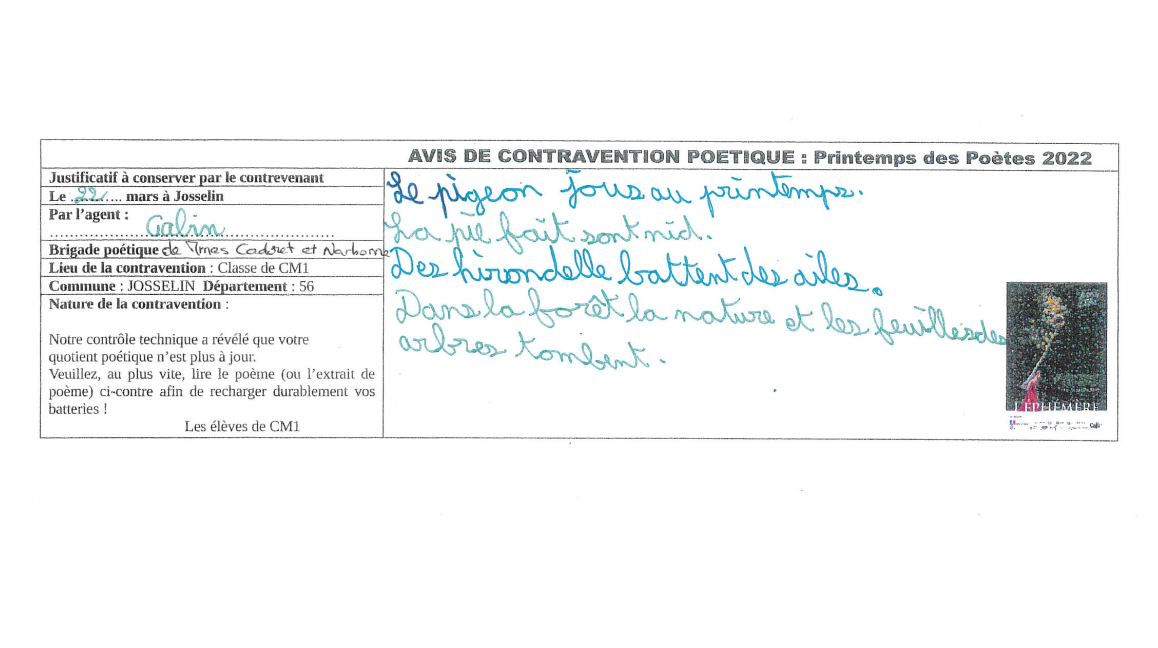 AVIS DE CONTRAVENTION POETIQUE : Printemps des Poètes 2022
Justificatif à conserver par le contrevenant
Le ..22..... mars à Josselin
Par l'agent :
Galin
Brigade poétique de Mmes Cadoret et Narbonne
Lieu de la contravention : Classe de CM1
Commune : JOSSELIN Département : 56
Nature de la contravention :
Notre contrôle technique a révélé que votre
quotient poétique n'est plus à jour.
Veuillez, au plus vite, lire le poème (ou l'extrait de
poème) ci-contre afin de recharger durablement vos
batteries !
Les élèves de CM1
Le pigeon jous au printemps.
La piè fait sont nid.
Des hirondelle battent des ailes.
Dans la forêt la nature et les feuilles des
arbres tombent.
L'ÉPHÉMÈRE